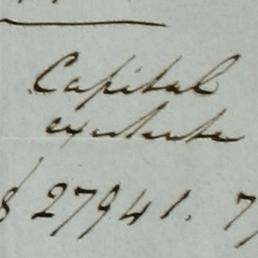 Capital
existente
$ 27941. 7